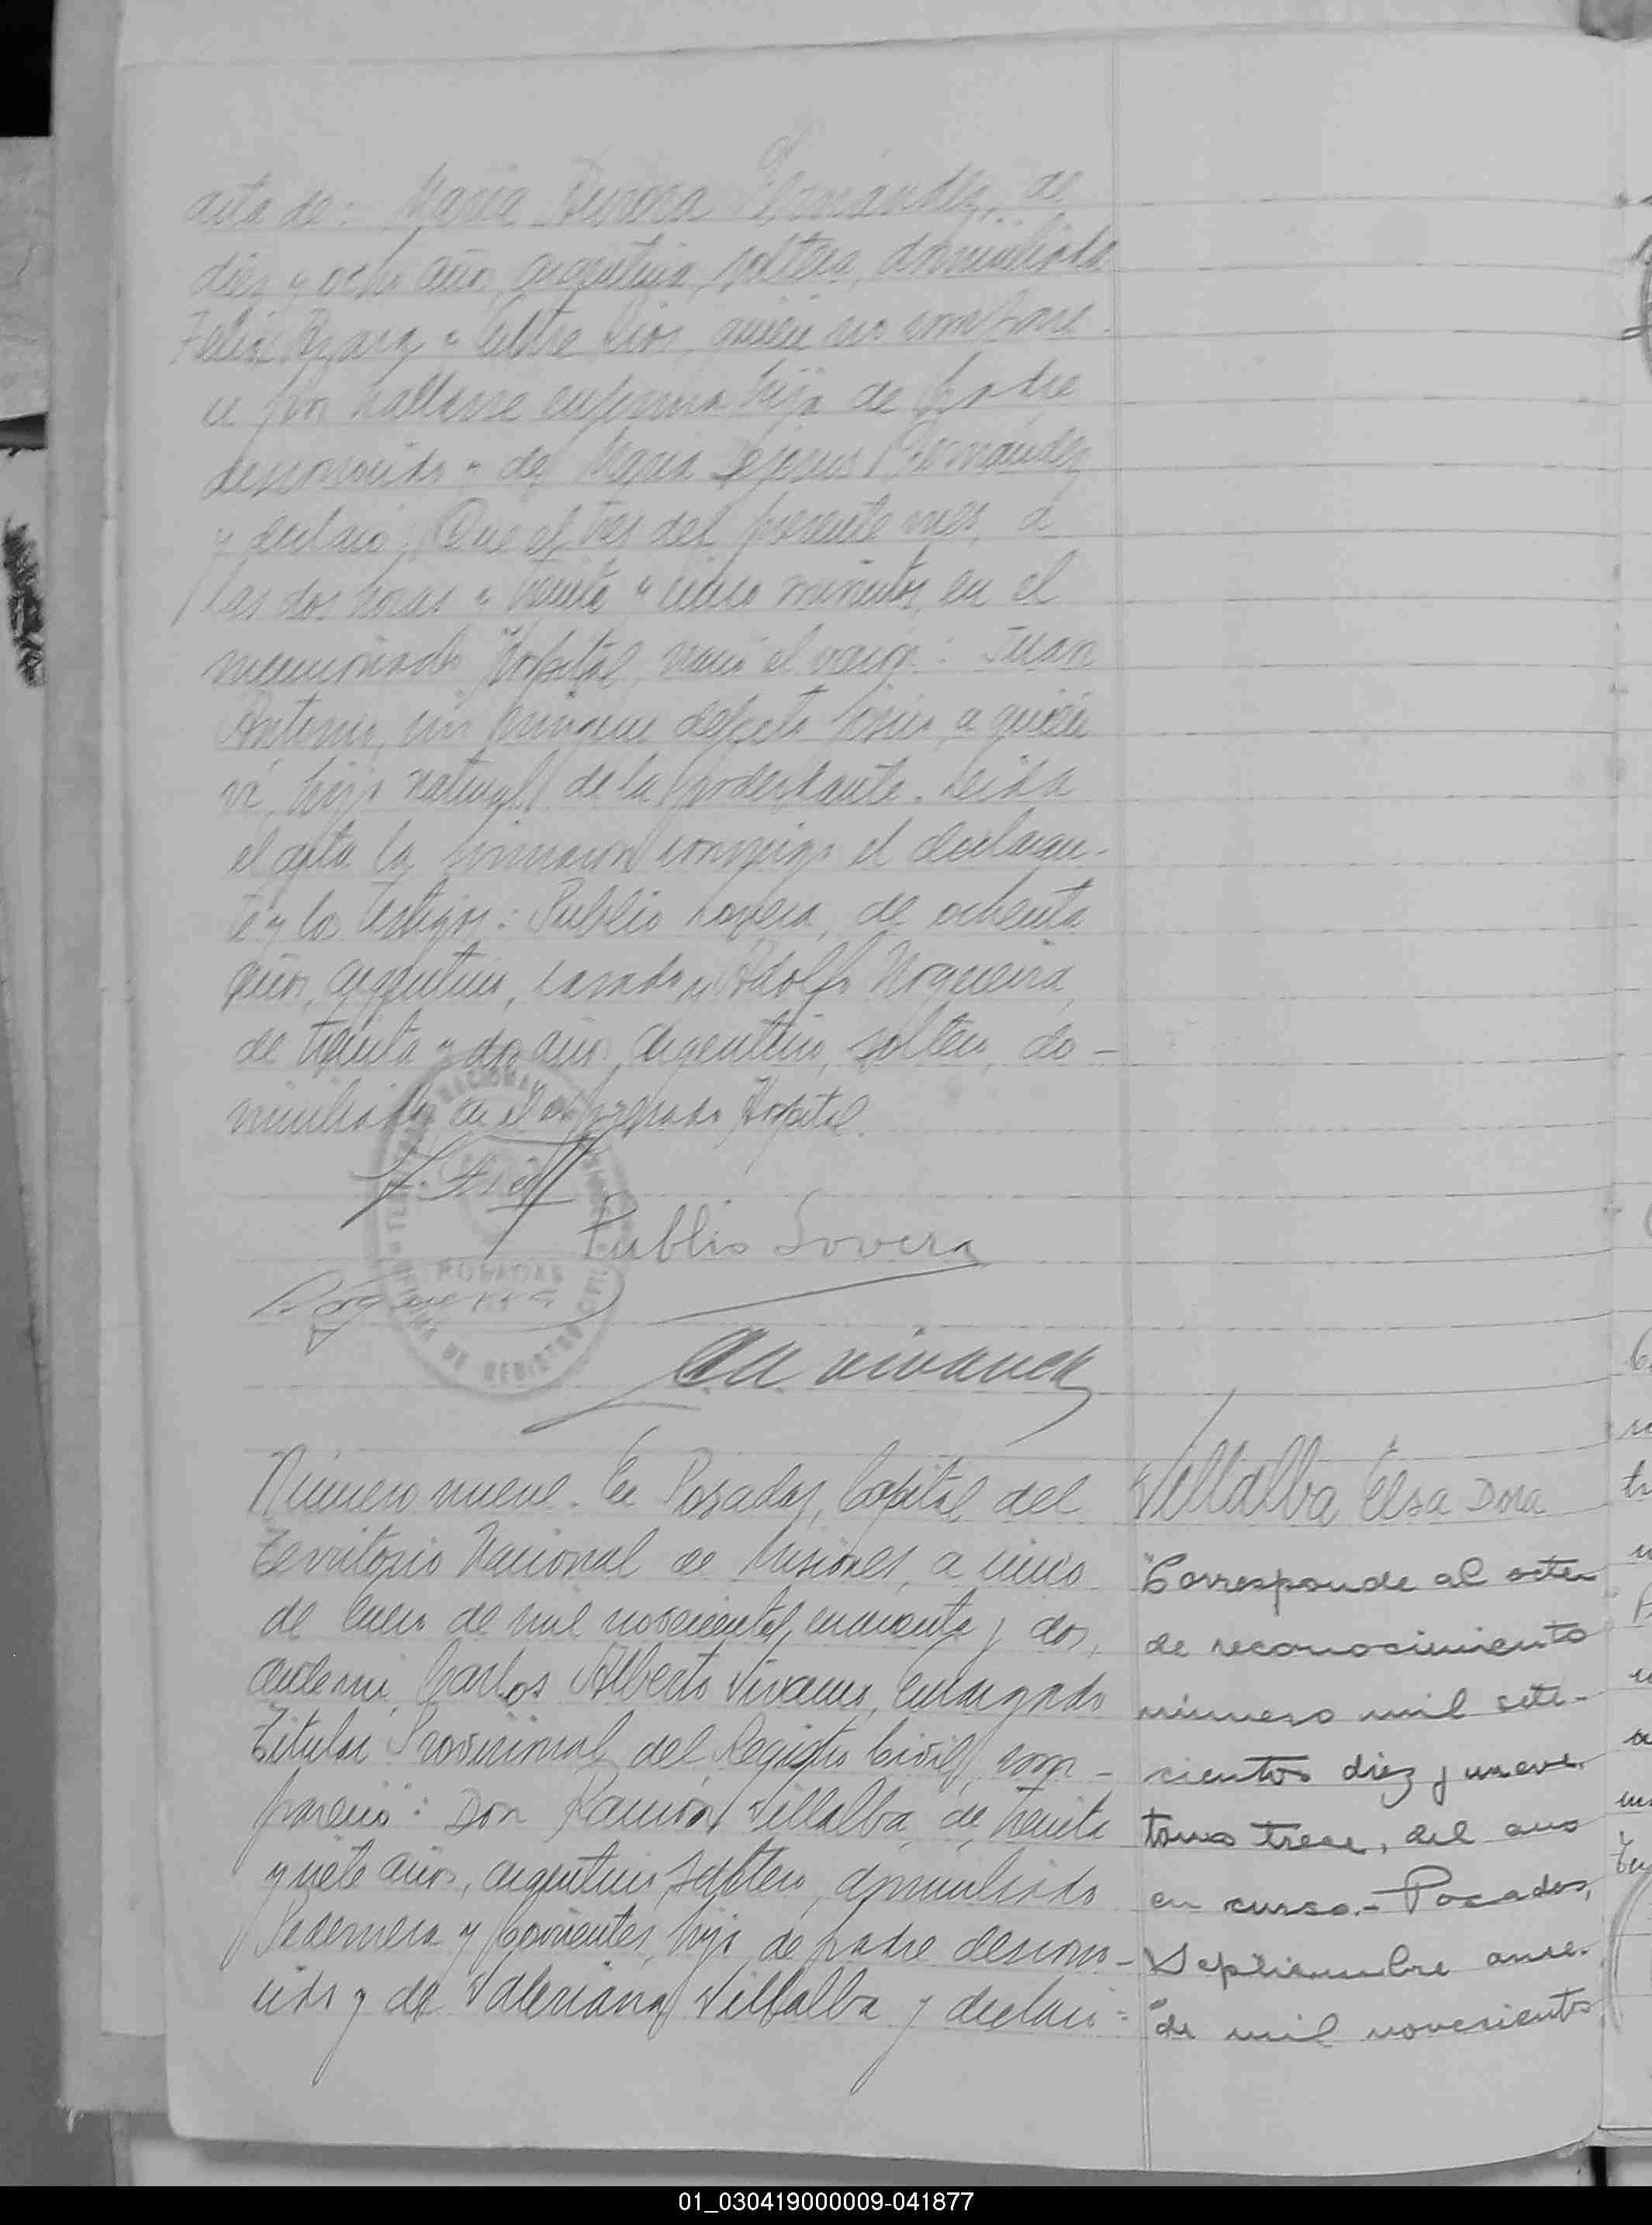 acta de: María Aurora Fernández, de
diez y ocho años, argentina, soltera, domiciliada
Felix Azara y Entre Rios, quién no compare-
ce por hallarse enferma, hija de padre
desconocido y de María Fernández
y declaró: Que el tres del presente mes, a
las dos horas y treinta y cinco minutos, en el
mencionado Hospital, nació el varon: Juan
Antonio, sin ninguna defecto físico, a quién
ví, hijo natural de la poderdante. Leida
el acta la firmaron conmigo el declaran-
te y los testigos: Publio Lovera, de ochenta
años, argentino, casado y Adolfo Nogueira,
de treinta y dos años, argentino, soltero, do-
miciliados en el expresado Hospital.
Publio Lovera
POSADAS
Número nueve. En Posadas, Capital del
Territorio Nacional de Misiones, a cinco
de Enero de mil novecientos cuarenta y dos,
ante mi, Carlos Alberto Vivanco, Encargado
Titular Provisional del Registro Civil, com-
pareció: Don Ramón Villalba, de treinta
y siete años, argentino, soltero, domiciliado
Pedernera y Corrientes, hijo de padre descono-
cido y de Valeriana Villalba y declaró:
Villalba Elsa Dora
"Corresponde al acta
de reconocimiento
número mil sete-
cientos diez y nueve
tomo trece, del año
en curso.- Posadas,
Septiembre once
de mil novecientos
01_030419000009-041877